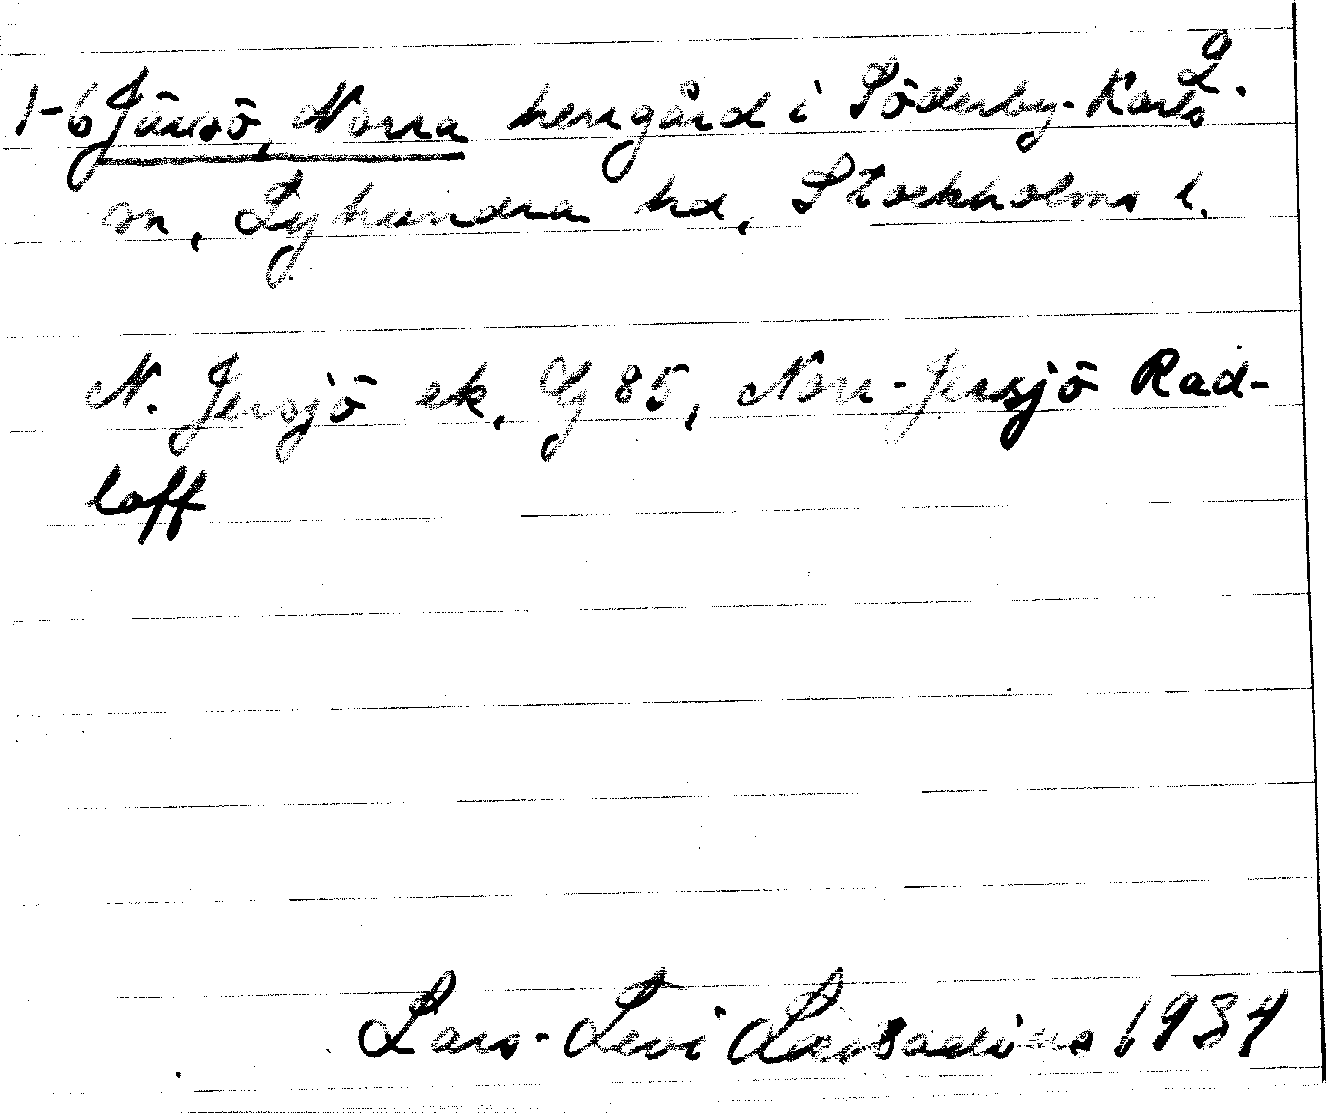 1-6 Järsö, Norra herrgård i Söderby-Karls
sn, Lyhundra hd, Stockholms l.
N. Jersjö ek. Gj 85, Norr-Jersjö Rad-
loff
Lars-Levi Læstadius 1934